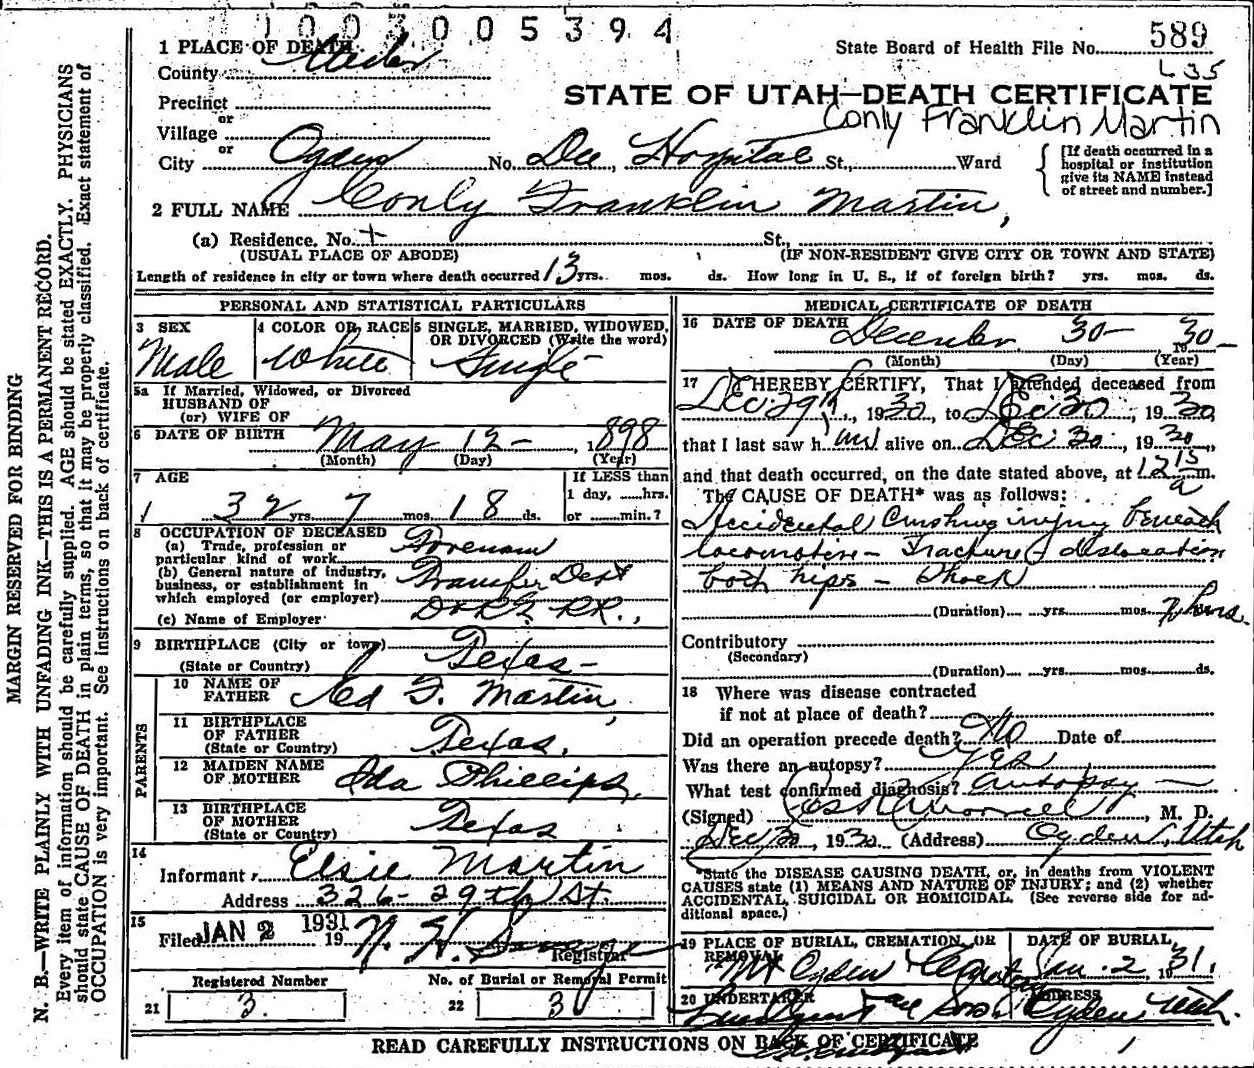 1003005394
1 PLACE OF DEATH
State Board of Health File No. 589
County Weber
L35
Precinct
STATE OF UTAH—DEATH CERTIFICATE
or
Village
Conly Franklin Martin
or
City Ogden No. Dee Hospital St., Ward
[If death occurred in a
hospital or institution
give its NAME instead
of street and number.]
2 FULL NAME Conly Franklin Martin,
(a) Residence, No. St.,
(USUAL PLACE OF ABODE) (IF NON-RESIDENT GIVE CITY OR TOWN AND STATE)
Length of residence in city or town where death occurred 13 yrs. mos. ds. How long in U. S., if of foreign birth? yrs. mos. ds.
PERSONAL AND STATISTICAL PARTICULARS
3 SEX
Male
4 COLOR OR RACE
White
5 SINGLE, MARRIED, WIDOWED,
OR DIVORCED (Write the word)
Single
5a If Married, Widowed, or Divorced
HUSBAND OF
(or) WIFE OF
6 DATE OF BIRTH May 12- 1898
(Month) (Day) (Year)
7 AGE
32 yrs. 7 mos. 18 ds.
If LESS than
1 day, ......hrs.
or ......min.?
8 OCCUPATION OF DECEASED
(a) Trade, profession or
particular kind of work Foreman
(b) General nature of industry,
business, or establishment in
which employed (or employer) Transfer Dept
(c) Name of Employer D&RG. RR.,
9 BIRTHPLACE (City or town)
(State or Country) Texas-
PARENTS
10 NAME OF
FATHER Ed F. Martin,
11 BIRTHPLACE
OF FATHER
(State or Country) Texas.
12 MAIDEN NAME
OF MOTHER Ida Phillips,
13 BIRTHPLACE
OF MOTHER
(State or Country) Texas
14
Informant Elsie Martin
Address 326-29th St.
15
Filed JAN 2 1931 19 N. H. Savage
Registrar
Registered Number
21 3
No. of Burial or Removal Permit
22 3
MEDICAL CERTIFICATE OF DEATH
16 DATE OF DEATH December 30- 1930-
(Month) (Day) (Year)
17 I HEREBY CERTIFY, That I attended deceased from
Dec 29th, 1930, to Dec 30, 1930,
that I last saw him alive on Dec 30, 1930,
and that death occurred, on the date stated above, at 12 15 a m.
The CAUSE OF DEATH* was as follows:
Accidental Crushing injury beneath
locomotive- Fracture & dislocation
both hips - Shock
(Duration) yrs. mos. 7 hours.
Contributory
(Secondary)
(Duration) yrs. mos. ds.
18 Where was disease contracted
if not at place of death?
Did an operation precede death? No Date of
Was there an autopsy? Yes
What test confirmed diagnosis? Autopsy
(Signed) , M. D.
Dec 30, 1930 (Address) Ogden, Utah
*State the DISEASE CAUSING DEATH, or, in deaths from VIOLENT
CAUSES state (1) MEANS AND NATURE OF INJURY; and (2) whether
ACCIDENTAL, SUICIDAL OR HOMICIDAL. (See reverse side for ad-
ditional space.)
19 PLACE OF BURIAL, CREMATION, OR
REMOVAL
Mt Ogden Cemetery
DATE OF BURIAL,
Jan. 2, 1931.
20 UNDERTAKER
Lindquist and Sons.
ADDRESS
Ogden Utah.
READ CAREFULLY INSTRUCTIONS ON BACK OF CERTIFICATE
MARGIN RESERVED FOR BINDING
N. B.—WRITE PLAINLY WITH UNFADING INK—THIS IS A PERMANENT RECORD.
Every item of information should be carefully supplied. AGE should be stated EXACTLY. PHYSICIANS
should state CAUSE OF DEATH in plain terms, so that it may be properly classified. Exact statement of
OCCUPATION is very important. See instructions on back of certificate.